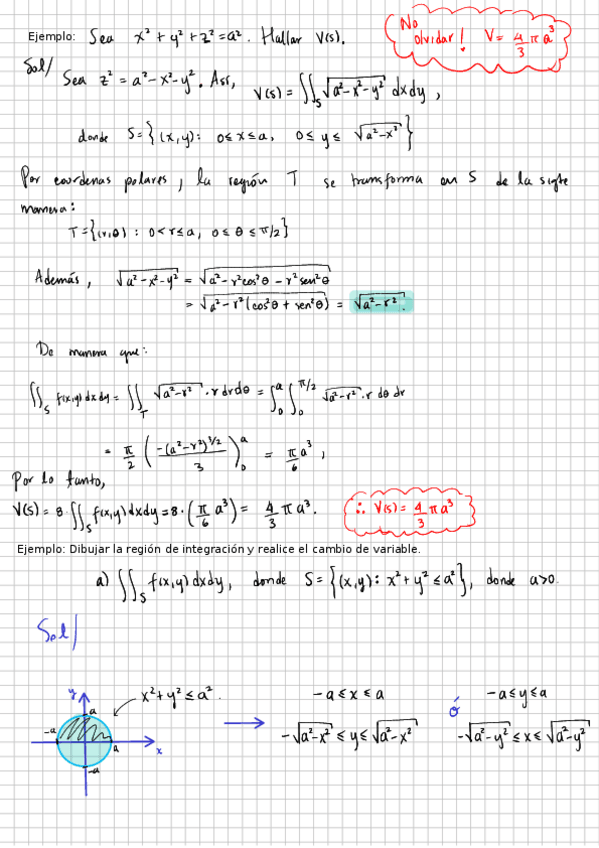 Ejemplo: Sea x² + y² + z² = a². Hallar V(s).
No olvidar! V = 4/3 π a³
Sol/
Sea z² = a² - x² - y². Así, V(s) = ∬_S √(a² - x² - y²) dx dy,
donde S = { (x, y): 0 ≤ x ≤ a, 0 ≤ y ≤ √(a² - x²) }
Por coordenas polares, la región T se transforma en S de la sigte
manera:
T = {(r, θ) : 0 < r ≤ a, 0 ≤ θ ≤ π/2}
Además, √(a² - x² - y²) = √(a² - r² cos² θ - r² sen² θ)
= √(a² - r² (cos² θ + sen² θ)) = √(a² - r²).
De manera que:
∬_S f(x,y) dx dy = ∬_T √(a² - r²) · r dr dθ = ∫_0^a ∫_0^{π/2} √(a² - r²) · r dθ dr
= π/2 ( -(a² - r²)^{3/2} / 3 )_0^a = π/6 a³,
Por lo tanto,
V(s) = 8 · ∬_S f(x,y) dx dy = 8 · (π/6 a³) = 4/3 π a³.
∴ V(s) = 4/3 π a³
Ejemplo: Dibujar la región de integración y realice el cambio de variable.
a) ∬_S f(x,y) dx dy, donde S = {(x,y): x² + y² ≤ a²}, donde a>0.
Sol/
y
x² + y² ≤ a².
a
-a
a
-a
x
-a ≤ x ≤ a
-√(a² - x²) ≤ y ≤ √(a² - x²)
ó
-a ≤ y ≤ a
-√(a² - y²) ≤ x ≤ √(a² - y²)